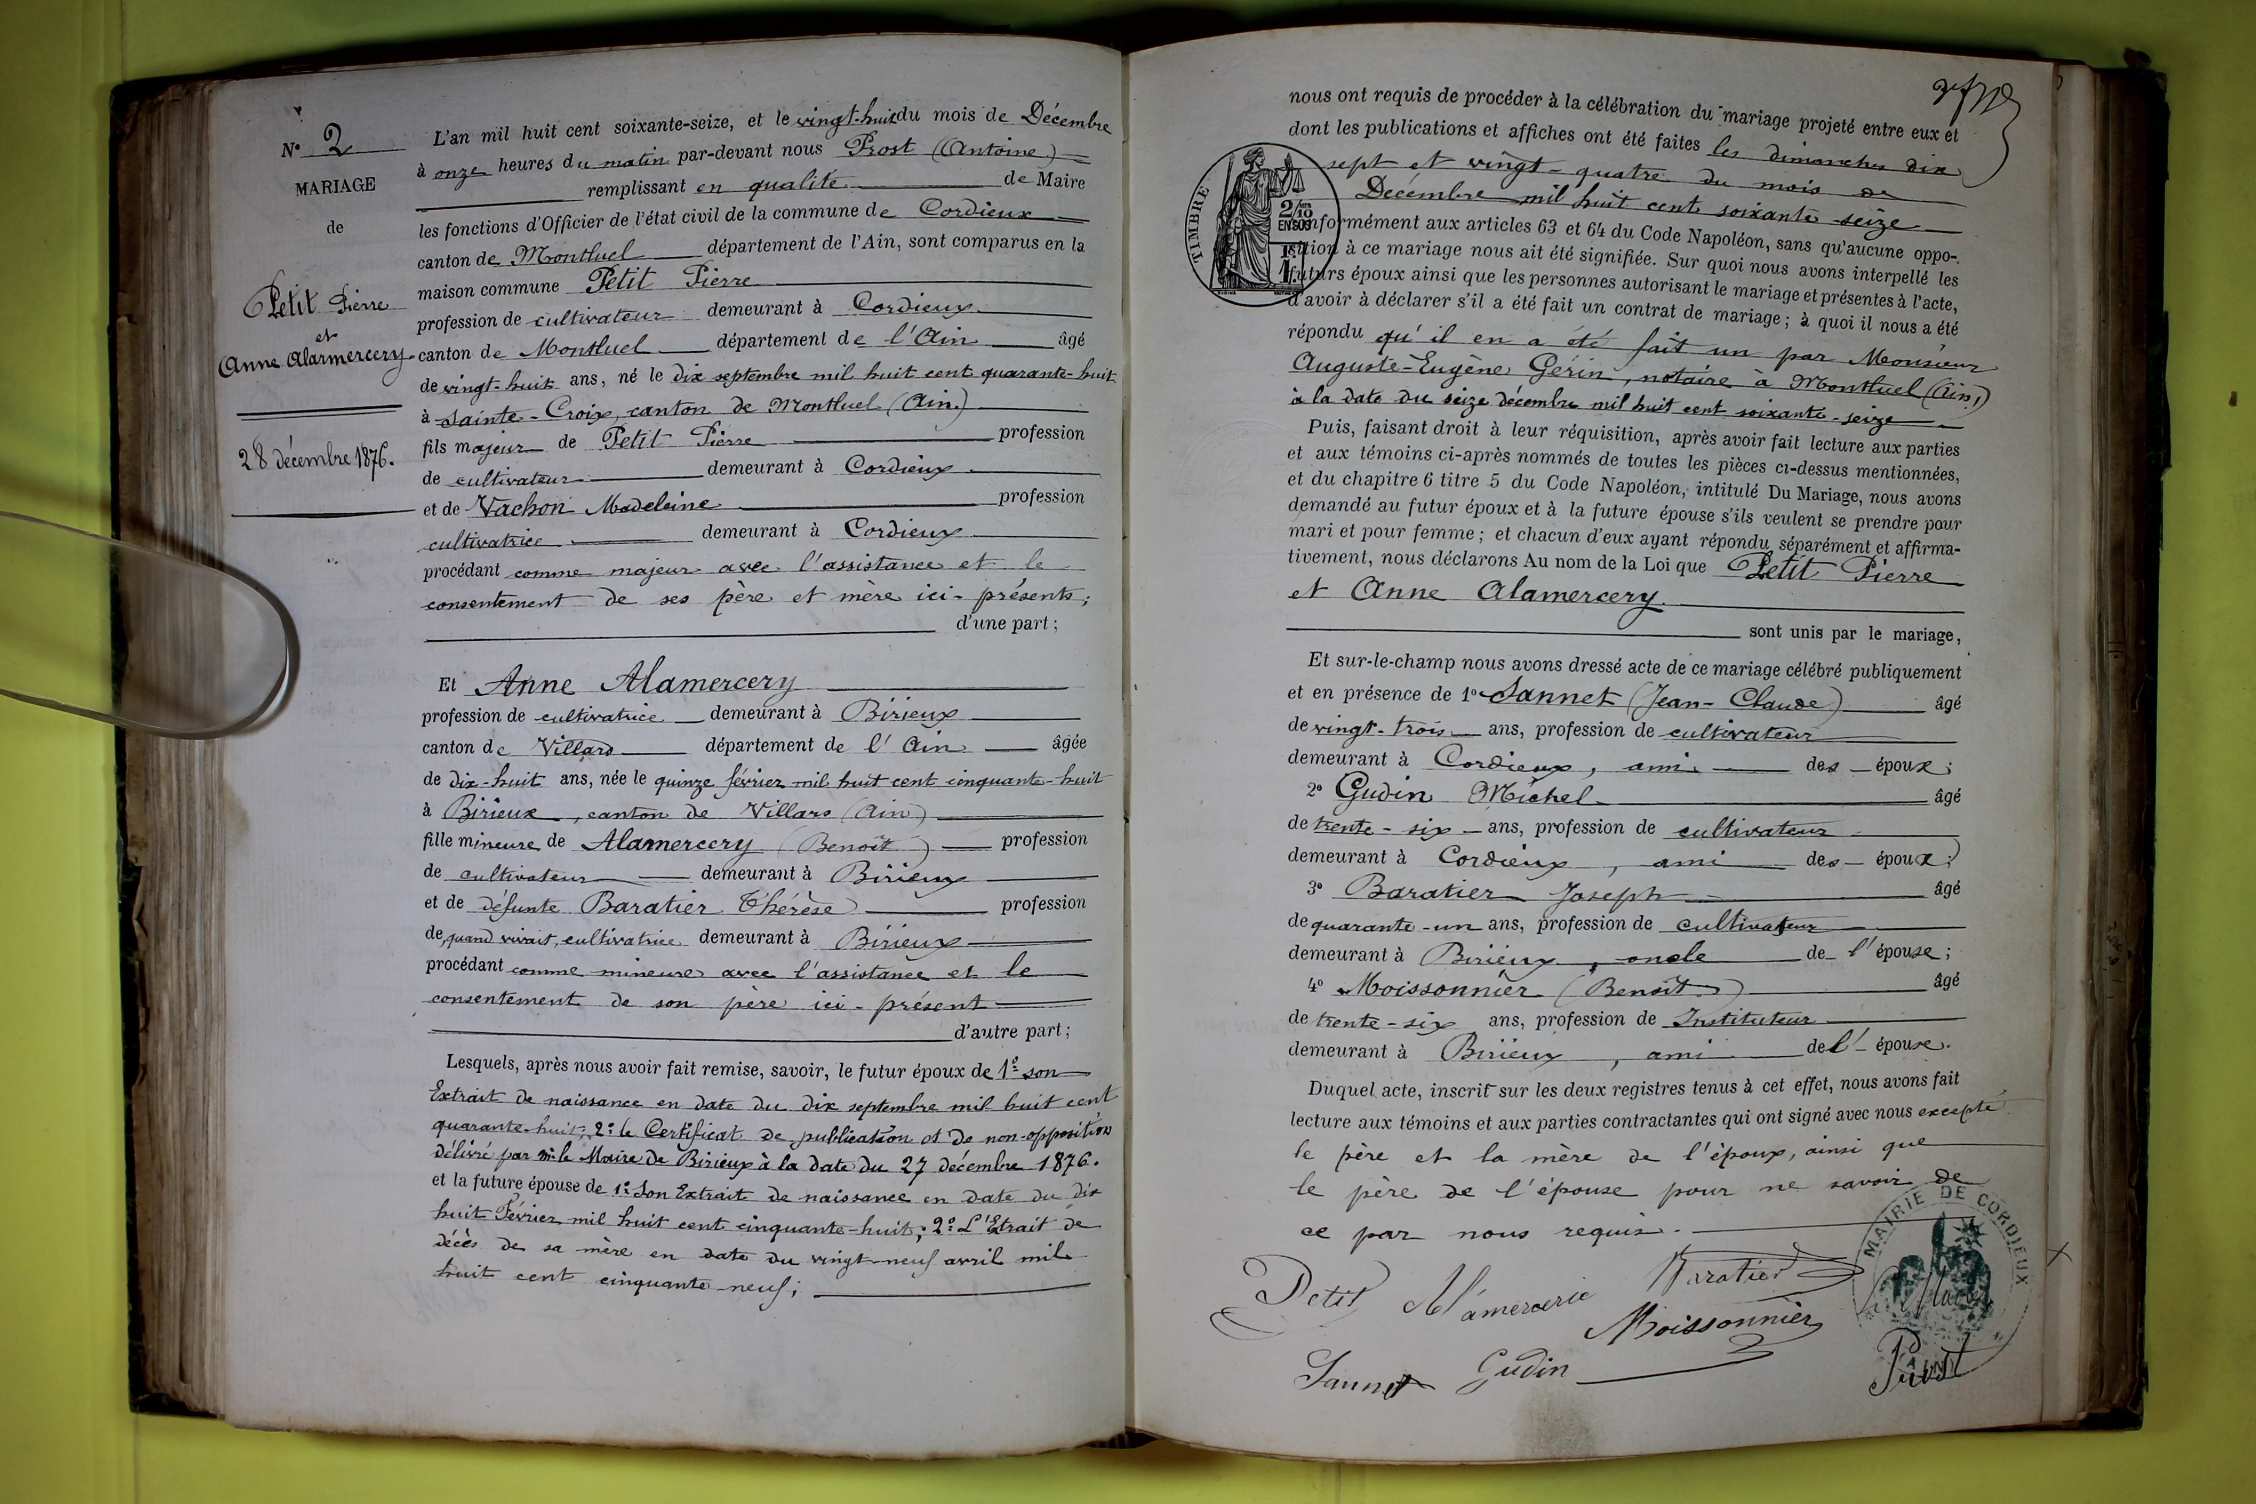 N° 2
MARIAGE
de
Petit Pierre
et
Anne Alarmercery
28 décembre 1876.
L'an mil huit cent soixante-seize, et le vingt-huit du mois de Décembre
à onze heures du matin par-devant nous Prost (Antoine)
remplissant en qualité de Maire
les fonctions d'Officier de l'état civil de la commune de Cordieux
canton de Montluel département de l'Ain, sont comparus en la
maison commune Petit Pierre
profession de cultivateur demeurant à Cordieux
canton de Montluel département de l'Ain âgé
de vingt-huit ans, né le dix septembre mil huit cent quarante-huit
à Sainte-Croix, canton de Montluel (Ain)
fils majeur de Petit Pierre profession
de cultivateur demeurant à Cordieux
et de Vachon Madeleine profession
cultivatrice demeurant à Cordieux
procédant comme majeur avec l'assistance et le
consentement de ses père et mère ici-présents;
d'une part;
Et Anne Alamercery
profession de cultivatrice demeurant à Birieux
canton de Villars département de l'Ain âgée
de dix-huit ans, née le quinze février mil huit cent cinquante-huit
à Birieux, canton de Villars (Ain)
fille mineure de Alamercery (Benoît) profession
de cultivateur demeurant à Birieux
et de défunte Baratier Thérèse profession
de, quand vivait, cultivatrice demeurant à Birieux
procédant comme mineure avec l'assistance et le
consentement de son père ici-présent
d'autre part;
Lesquels, après nous avoir fait remise, savoir, le futur époux de 1° son
Extrait de naissance en date du dix septembre mil huit cent
quarante-huit; 2° le Certificat de publication et de non-opposition
délivré par Mr le Maire de Birieux à la date du 27 décembre 1876.
et la future épouse de 1° Son Extrait de naissance en date du dix
huit Février mil huit cent cinquante-huit; 2° L'Etrait de
décès de sa mère en date du vingt-neuf avril mil
huit cent cinquante neuf;
nous ont requis de procéder à la célébration du mariage projeté entre eux et
dont les publications et affiches ont été faites les dimanches dix
sept et vingt-quatre du mois de
Décembre mil huit cent soixante-seize
TIMBRE
2/10
EN SUS
conformément aux articles 63 et 64 du Code Napoléon, sans qu'aucune oppo-
sition à ce mariage nous ait été signifiée. Sur quoi nous avons interpellé les
futurs époux ainsi que les personnes autorisant le mariage et présentes à l'acte,
d'avoir à déclarer s'il a été fait un contrat de mariage; à quoi il nous a été
répondu qu'il en a été fait un par Monsieur
Auguste-Eugène Gérin, notaire à Montluel (Ain)
à la date du seize décembre mil huit cent soixante-seize
Puis, faisant droit à leur réquisition, après avoir fait lecture aux parties
et aux témoins ci-après nommés de toutes les pièces ci-dessus mentionnées,
et du chapitre 6 titre 5 du Code Napoléon, intitulé Du Mariage, nous avons
demandé au futur époux et à la future épouse s'ils veulent se prendre pour
mari et pour femme; et chacun d'eux ayant répondu séparément et affirma-
tivement, nous déclarons Au nom de la Loi que Petit Pierre
et Anne Alamercery
sont unis par le mariage,
Et sur-le-champ nous avons dressé acte de ce mariage célébré publiquement
et en présence de 1° Sannet (Jean-Claude) âgé
de vingt-trois ans, profession de cultivateur
demeurant à Cordieux, ami des époux;
2° Gudin Michel âgé
de trente-six ans, profession de cultivateur
demeurant à Cordieux, ami des époux;
3° Baratier Joseph âgé
de quarante-un ans, profession de cultivateur
demeurant à Birieux, oncle de l'épouse;
4° Moissonnier (Benoît) âgé
de trente-six ans, profession de Instituteur
demeurant à Birieux, ami de l'épouse.
Duquel acte, inscrit sur les deux registres tenus à cet effet, nous avons fait
lecture aux témoins et aux parties contractantes qui ont signé avec nous excepté
le père et la mère de l'époux, ainsi que
le père de l'épouse pour ne savoir de
ce par nous requis.
MAIRIE DE CORDIEUX
Petit Al'amercerie Baratier
Moissonnier
Le Maire
Sannet Gudin
Prost